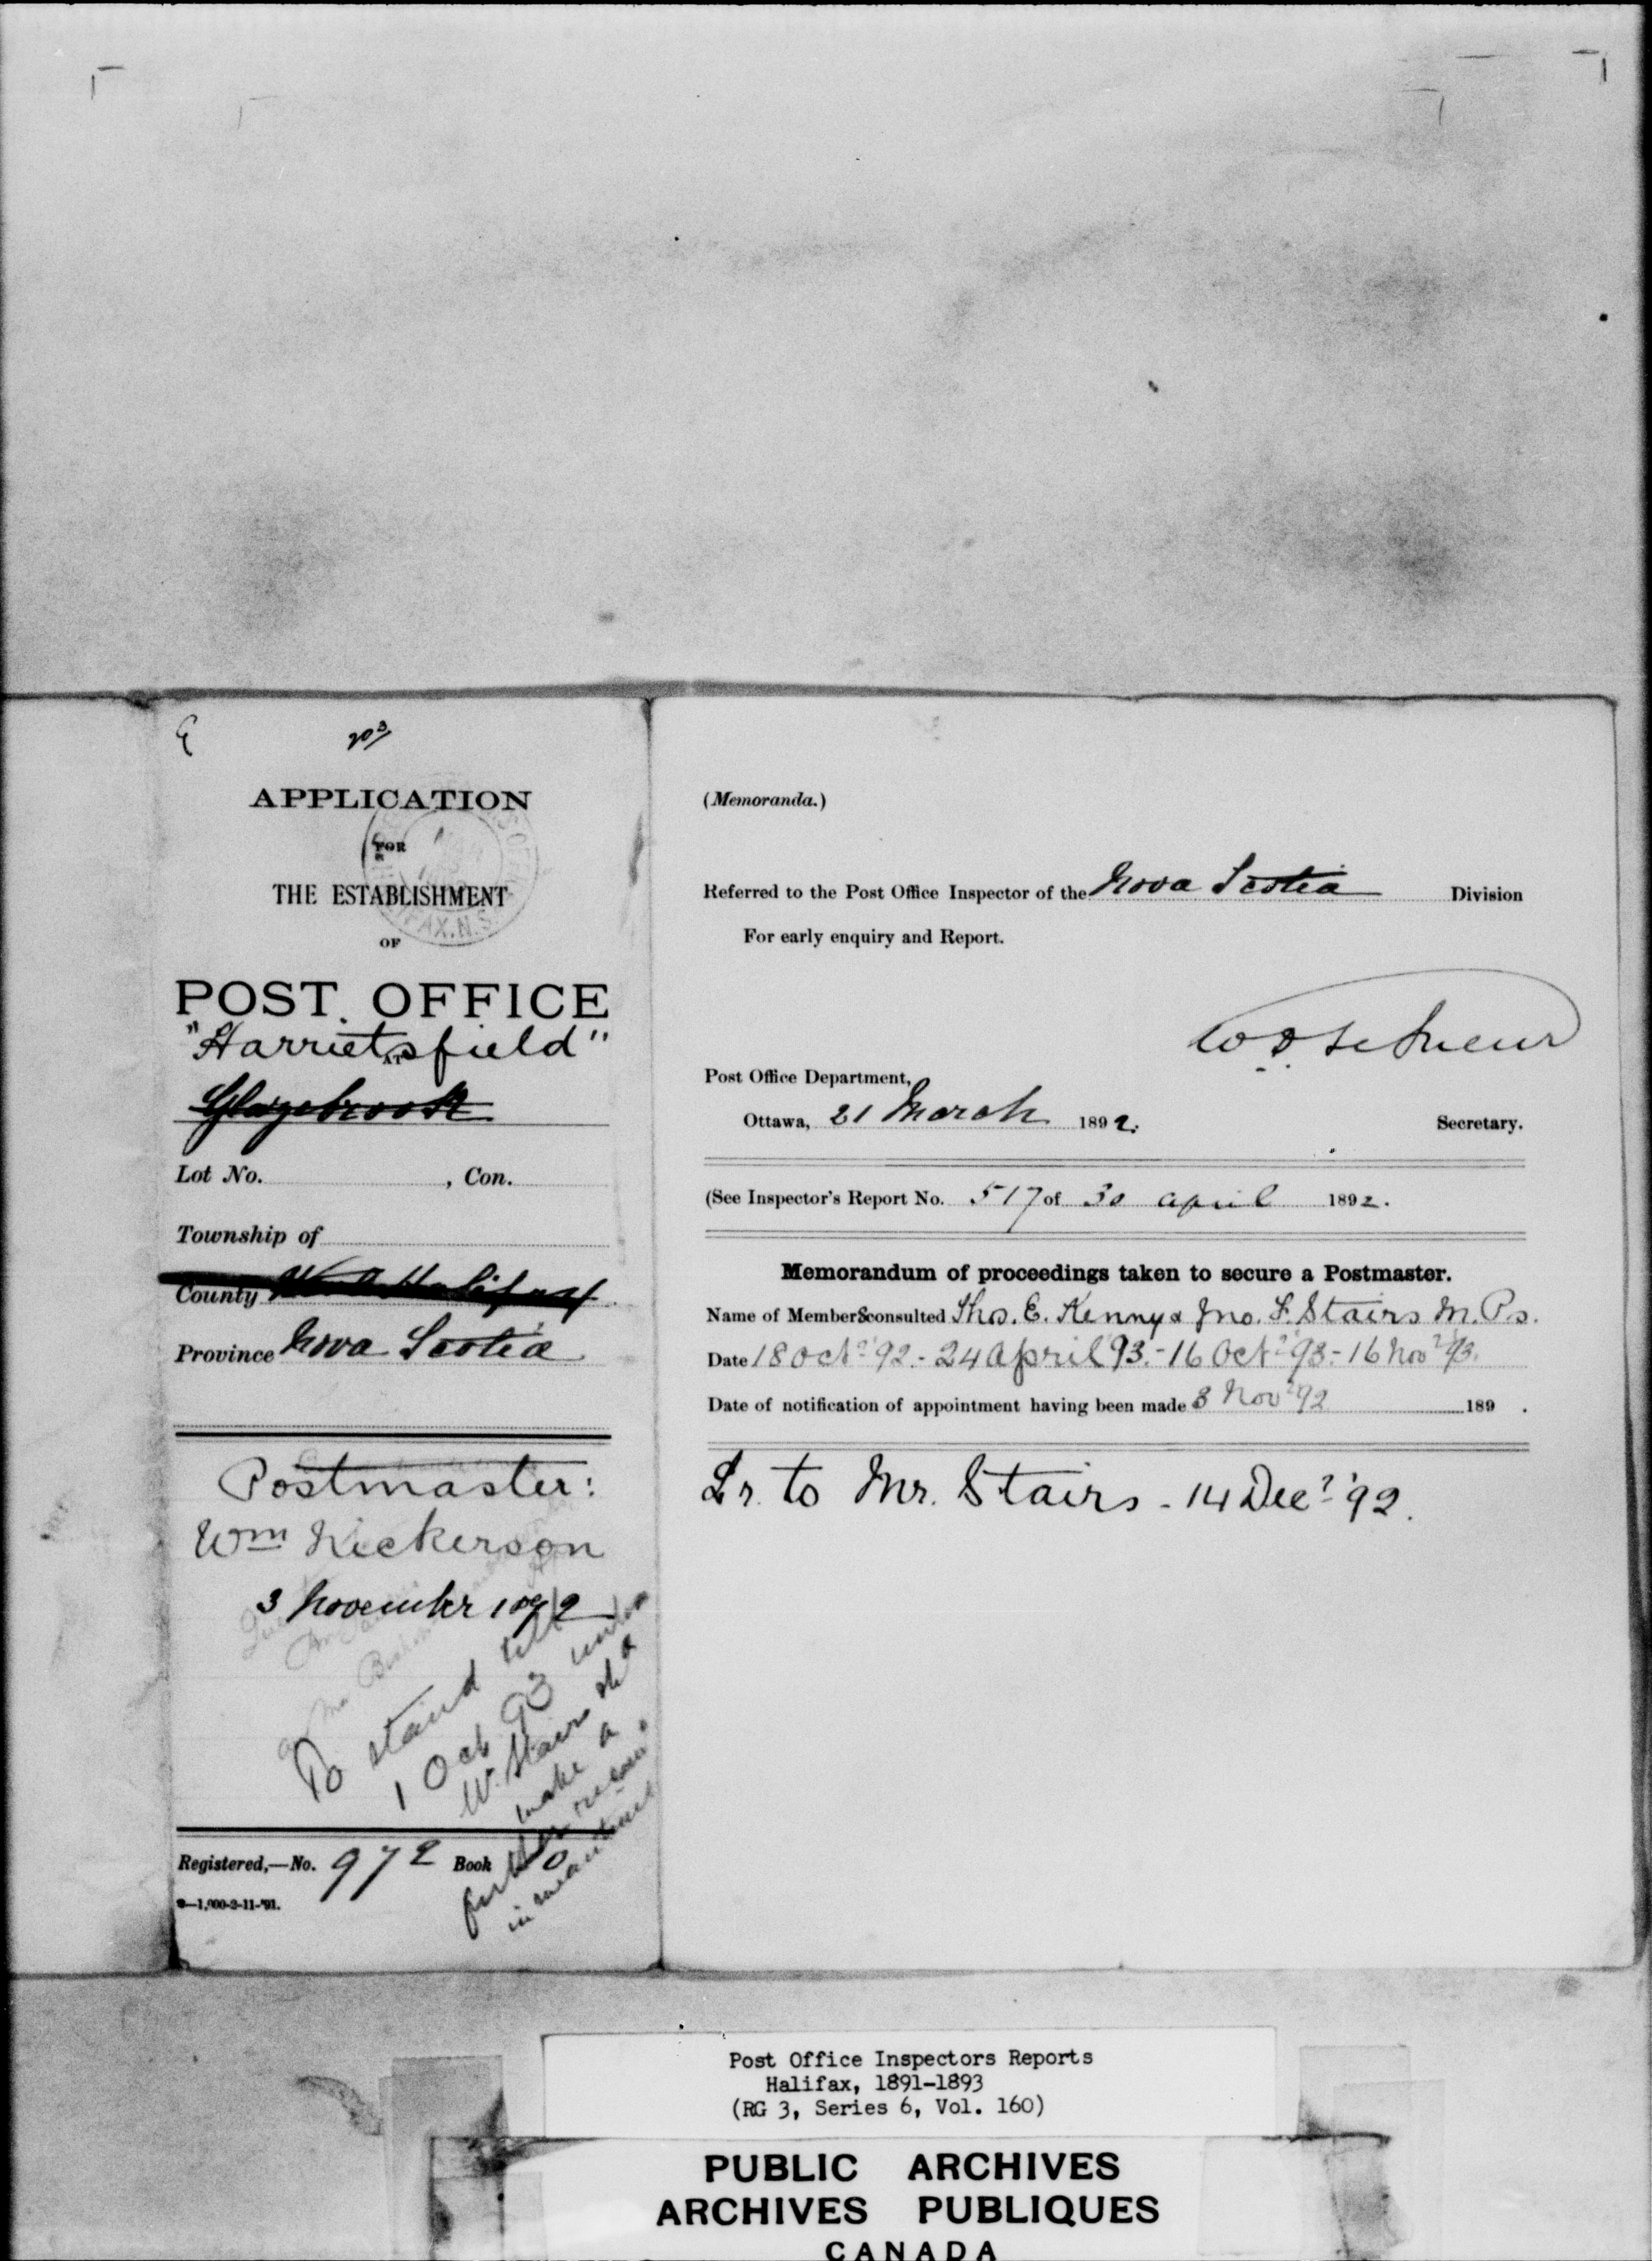 203
APPLICATION
FOR
THE ESTABLISHMENT
OF
POST OFFICE
"Harrietsfield"
AT
Glazebrook
Lot No. , Con.
Township of
County Halifax
Province Nova Scotia
Postmaster:
Wm Nickerson
3 November 1892
To stand till
1 Oct 93 unless
Mr. Stairs shd
make a
further recom.
in meantime
Registered,—No. 972 Book
—1,000-2-11-'91.
(Memoranda.)
Referred to the Post Office Inspector of the Nova Scotia Division
For early enquiry and Report.
Post Office Department,
Ottawa, 21 March 1892. Secretary.
(See Inspector's Report No. 517 of 30 April 1892.
Memorandum of proceedings taken to secure a Postmaster.
Name of Members consulted Thos. E. Kenny & Jno. F. Stairs M.P.s.
Date 18 Octr '92. - 24 April 93. - 16 Octr '93. - 16 Novr '93.
Date of notification of appointment having been made 3 Novr '92 189 .
Lr. to Mr. Stairs - 14 Decr '92.
Post Office Inspectors Reports
Halifax, 1891-1893
(RG 3, Series 6, Vol. 160)
PUBLIC ARCHIVES
ARCHIVES PUBLIQUES
CANADA